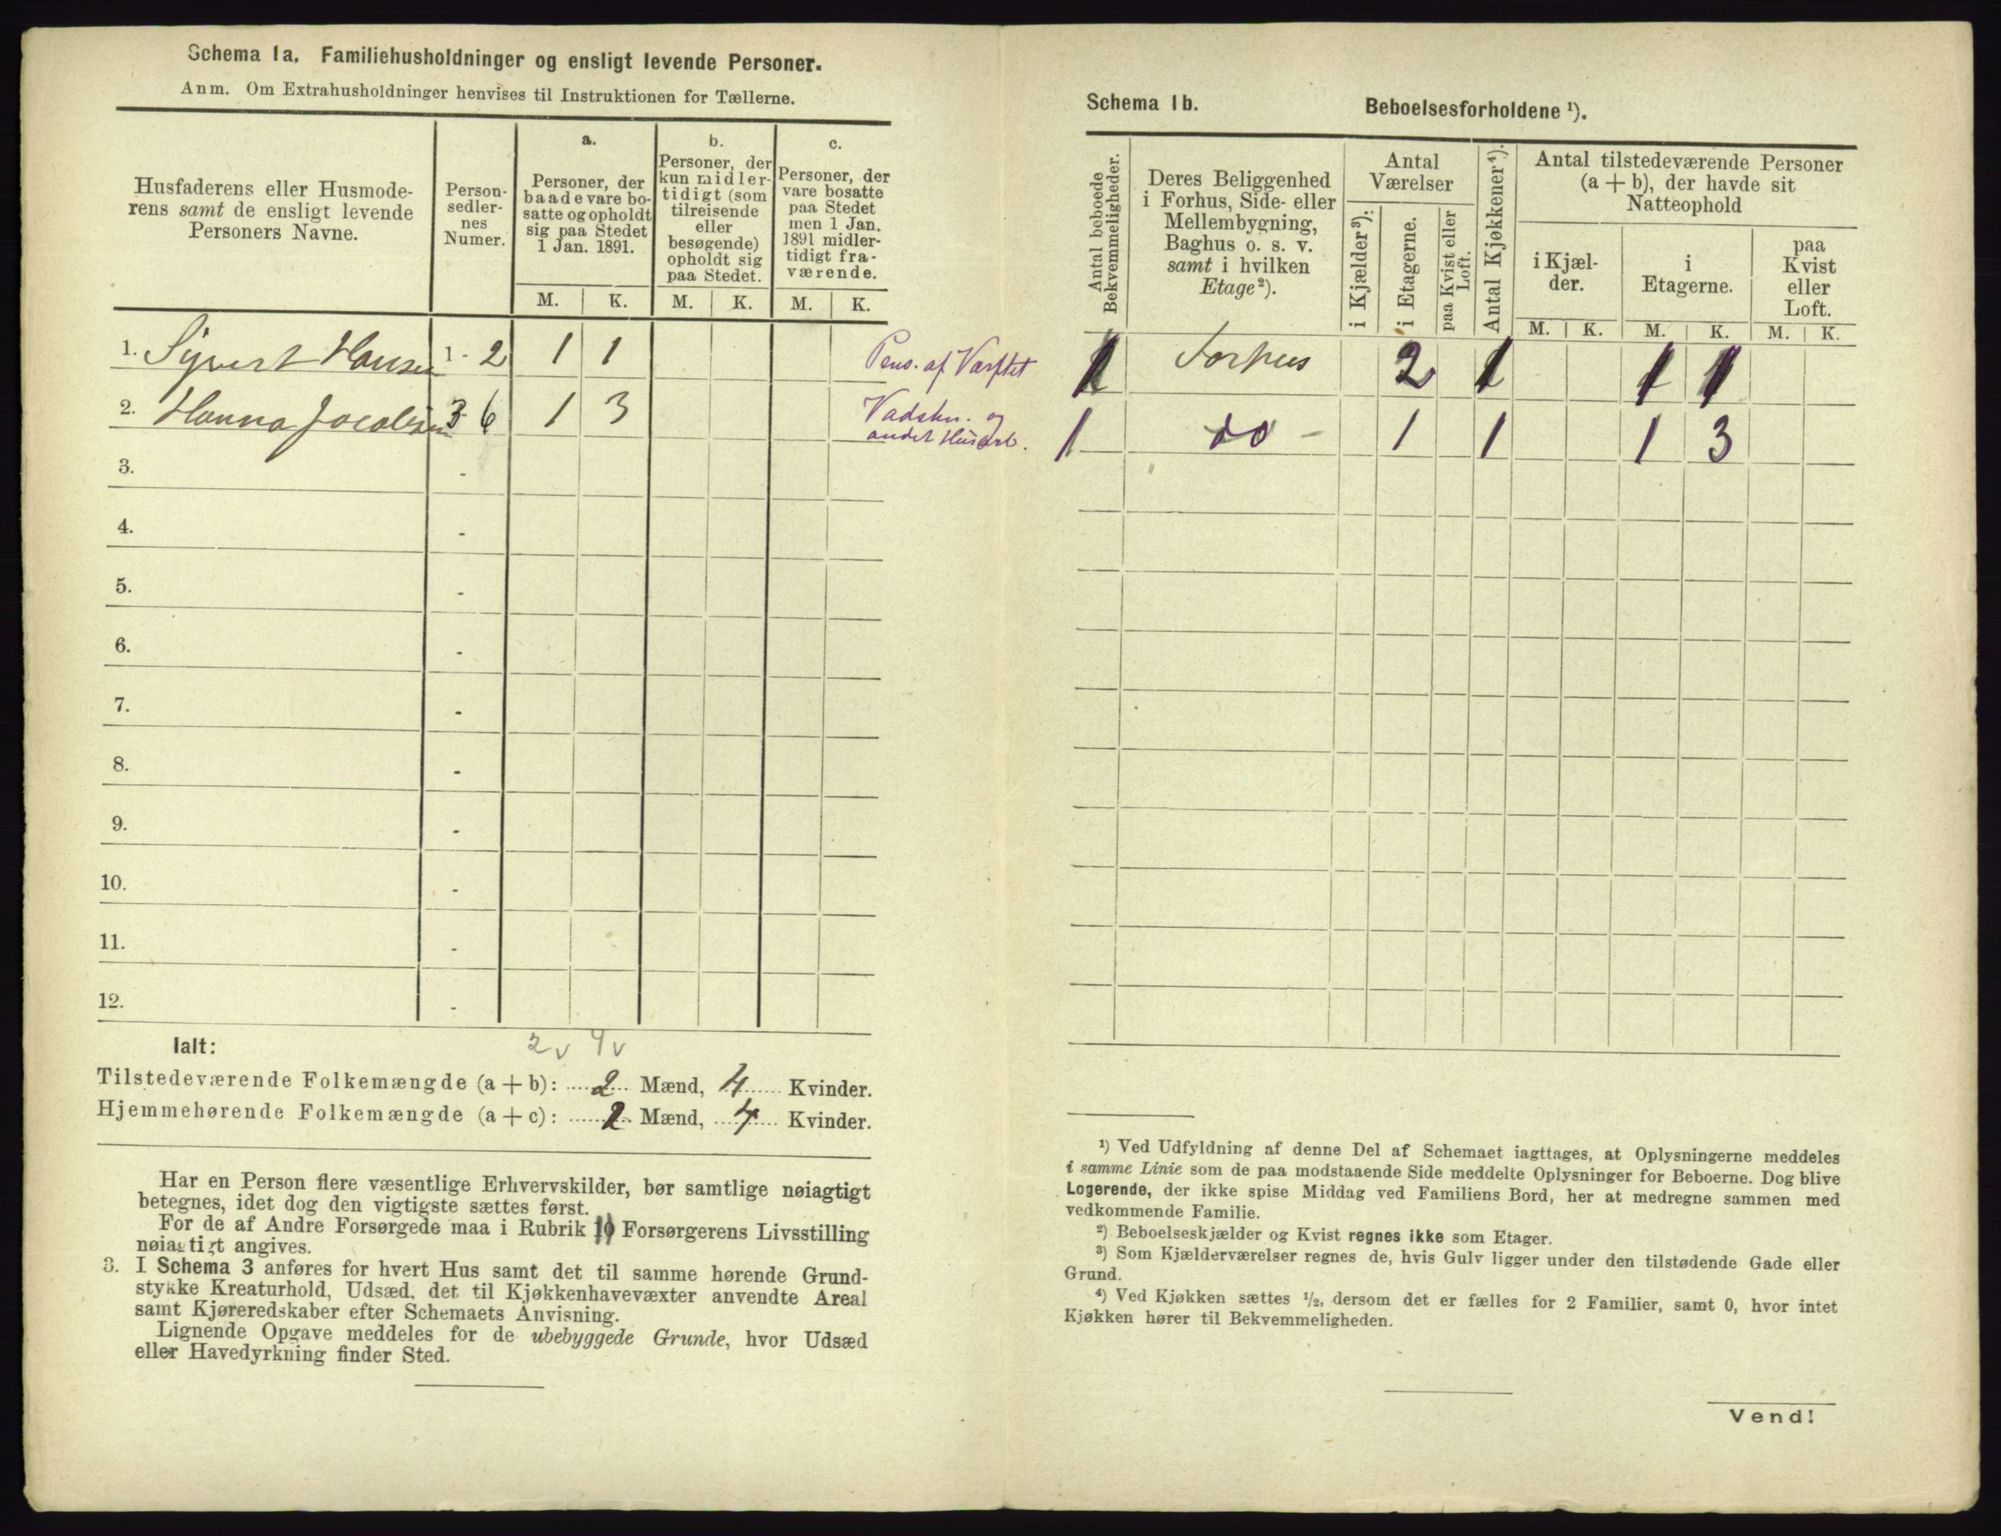 Schema 1a. Familiehusholdninger og ensligt levende Personer.
Anm. Om Extrahusholdninger henvises til Instruktionen for Tællerne.
Husfaderens eller Husmode-
rens samt de ensligt levende
Personers Navne.
Person-
sedler-
nes
Numer.
a.
Personer, der
baade vare bo-
satte og opholdt
sig paa Stedet
1 Jan. 1891.
b.
Personer, der
kun midler-
tidigt (som
tilreisende
eller
besøgende)
opholdt sig
paa Stedet.
c.
Personer, der
vare bosatte
paa Stedet
men 1 Jan.
1891 midler-
tidigt fra-
værende.
M. K. M. K. M. K.
1. Syvert Hansen 1 - 2 1 1 Pens. af Værftet
2. Hanna Jacobsen 3 - 6 1 3 Vadskn. og
andet Husarb.
3. -
4. -
5. -
6. -
7. -
8. -
9. -
10. -
11. -
12. -
Ialt: 2 v 4 v
Tilstedeværende Folkemængde (a + b): 2 Mænd, 4 Kvinder.
Hjemmehørende Folkemængde (a + c): 2 Mænd, 4 Kvinder.
Har en Person flere væsentlige Erhvervskilder, bør samtlige nøiagtigt
betegnes, idet dog den vigtigste sættes først.
For de af Andre Forsørgede maa i Rubrik 10 Forsørgerens Livsstilling
nøiagtigt angives.
3. I Schema 3 anføres for hvert Hus samt det til samme hørende Grund-
stykke Kreaturhold, Udsæd, det til Kjøkkenhavevæxter anvendte Areal
samt Kjøreredskaber efter Schemaets Anvisning.
Lignende Opgave meddeles for de ubebyggede Grunde, hvor Udsæd
eller Havedyrkning finder Sted.
Schema 1b. Beboelsesforholdene ¹).
Antal beboede
Bekvemmeligheder.
Deres Beliggenhed
i Forhus, Side- eller
Mellembygning,
Baghus o. s. v.
samt i hvilken
Etage²).
Antal
Værelser
i Kjælder³):
i Etagerne.
paa Kvist eller
Loft.
Antal Kjøkkener⁴).
Antal tilstedeværende Personer
(a + b), der havde sit
Natteophold
i Kjæl-
der.
i
Etagerne.
paa
Kvist
eller
Loft.
M. K. M. K. M. K.
1 Forhus 2 1 1 1
1 do - 1 1 1 3
¹) Ved Udfyldning af denne Del af Schemaet iagttages, at Oplysningerne meddeles
i samme Linie som de paa modstaaende Side meddelte Oplysninger for Beboerne. Dog blive
Logerende, der ikke spise Middag ved Familiens Bord, her at medregne sammen med
vedkommende Familie.
²) Beboelseskjælder og Kvist regnes ikke som Etager.
³) Som Kjælderværelser regnes de, hvis Gulv ligger under den tilstødende Gade eller
Grund.
⁴) Ved Kjøkken sættes ½, dersom det er fælles for 2 Familier, samt 0, hvor intet
Kjøkken hører til Bekvemmeligheden.
Vend!